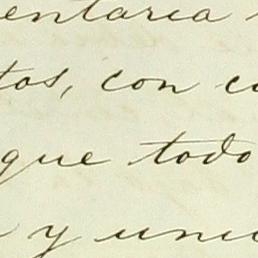 entaria
tos, con c
que todo
y uni